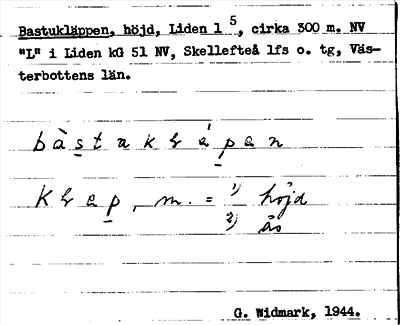 Bastukläppen, höjd, Liden 1 5, cirka 300 m. NV
"L" i Liden kG 51 NV, Skellefteå lfs o. tg, Väs-
terbottens län.
m. = 1) höjd
2) ås
G. Widmark, 1944.